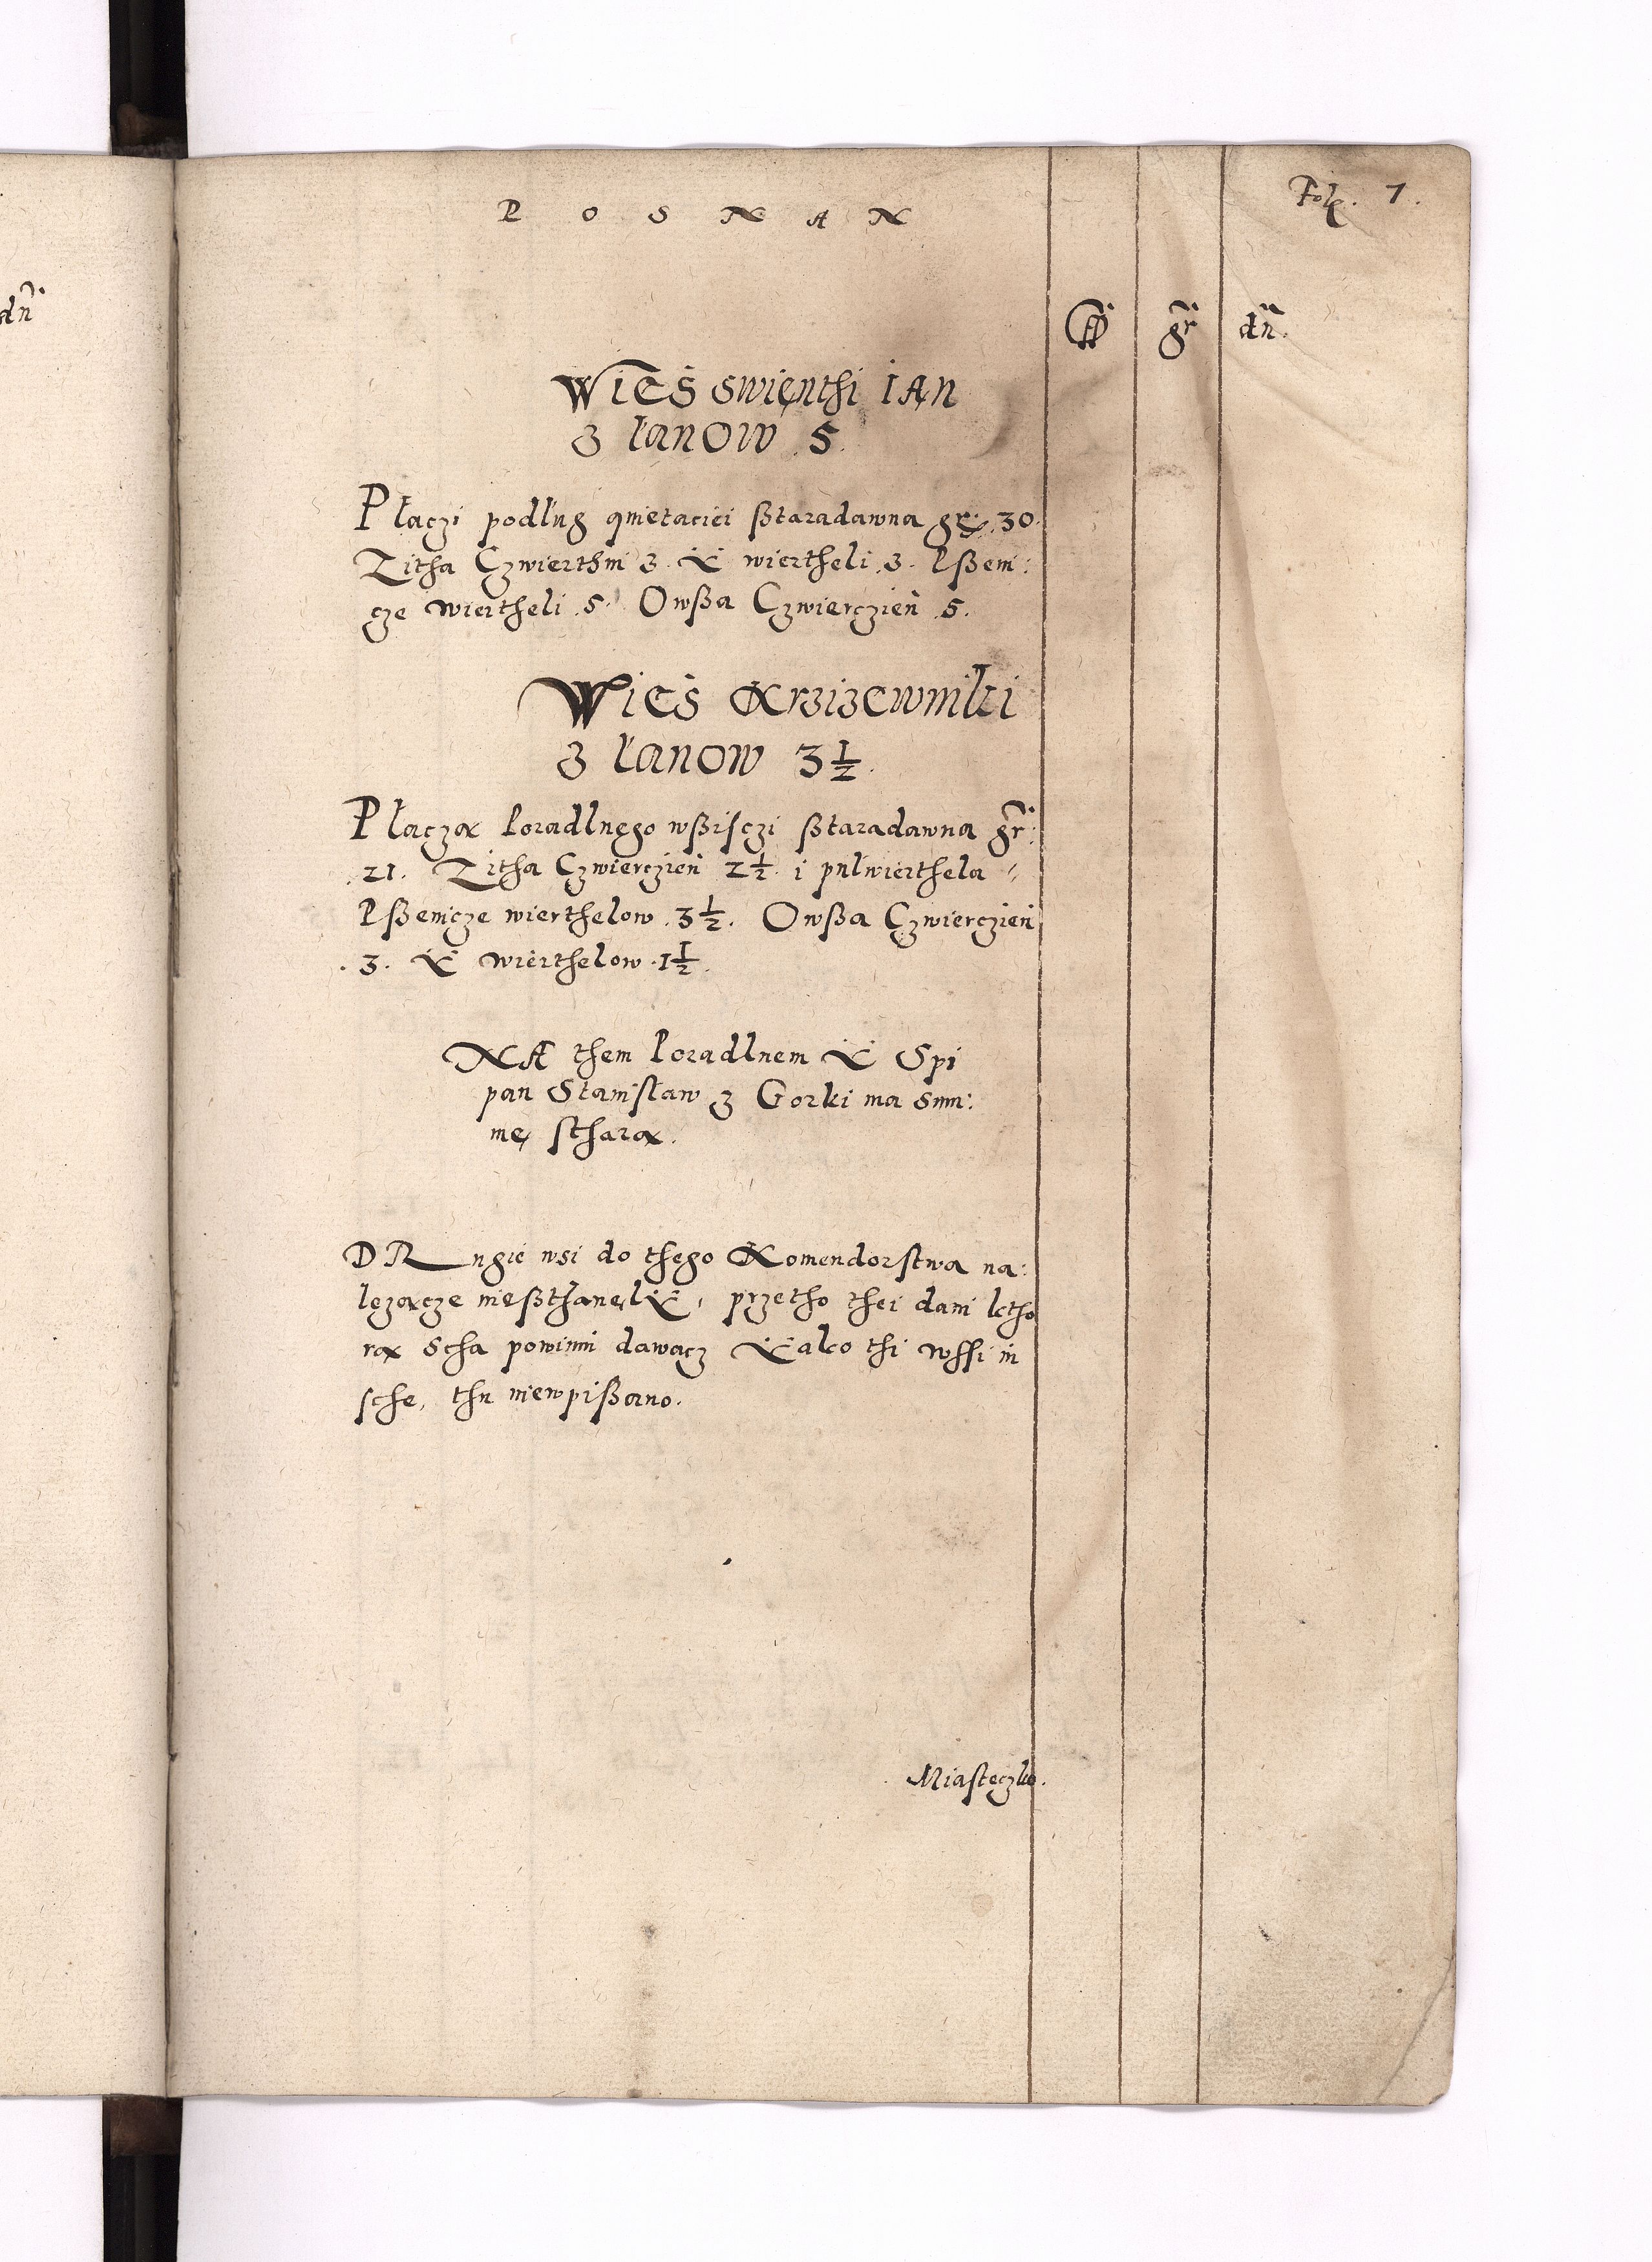 dñ
P O S N A N
Fol. 7.
fl gr dñ.
Wieś Swięnthi IAn
z łanow .5.
Płaczi podług qnietaciei ßtaradawna gr. 30.
Zitha Czwierthni 3. Y wiertheli .3. Pßeni:
cze wiertheli .5. Owßa Czwierczień .5.
Wieś Krziżewniki
z łanow 3½.
Płaczą Poradlnego wßisczi ßtaradawna gr:
.21. Zitha Czwierczień 2½. i pułwierthela
Pßenicze wierthelow .3½. Owßa Czwierczień
.3. Y wierthelow .1½.
NA them Poradlnem Y Spi
pan Stanisław z Gorki ma Sum:
mę stharą.
DRugie wsi do thego Komendorstwa na:
lęzącze nießthanęłY, przetho thei dani ktho
rą Scha powinni dawacz Yako thi wssi in
sche, thu niewpißano.
Miasteczko.